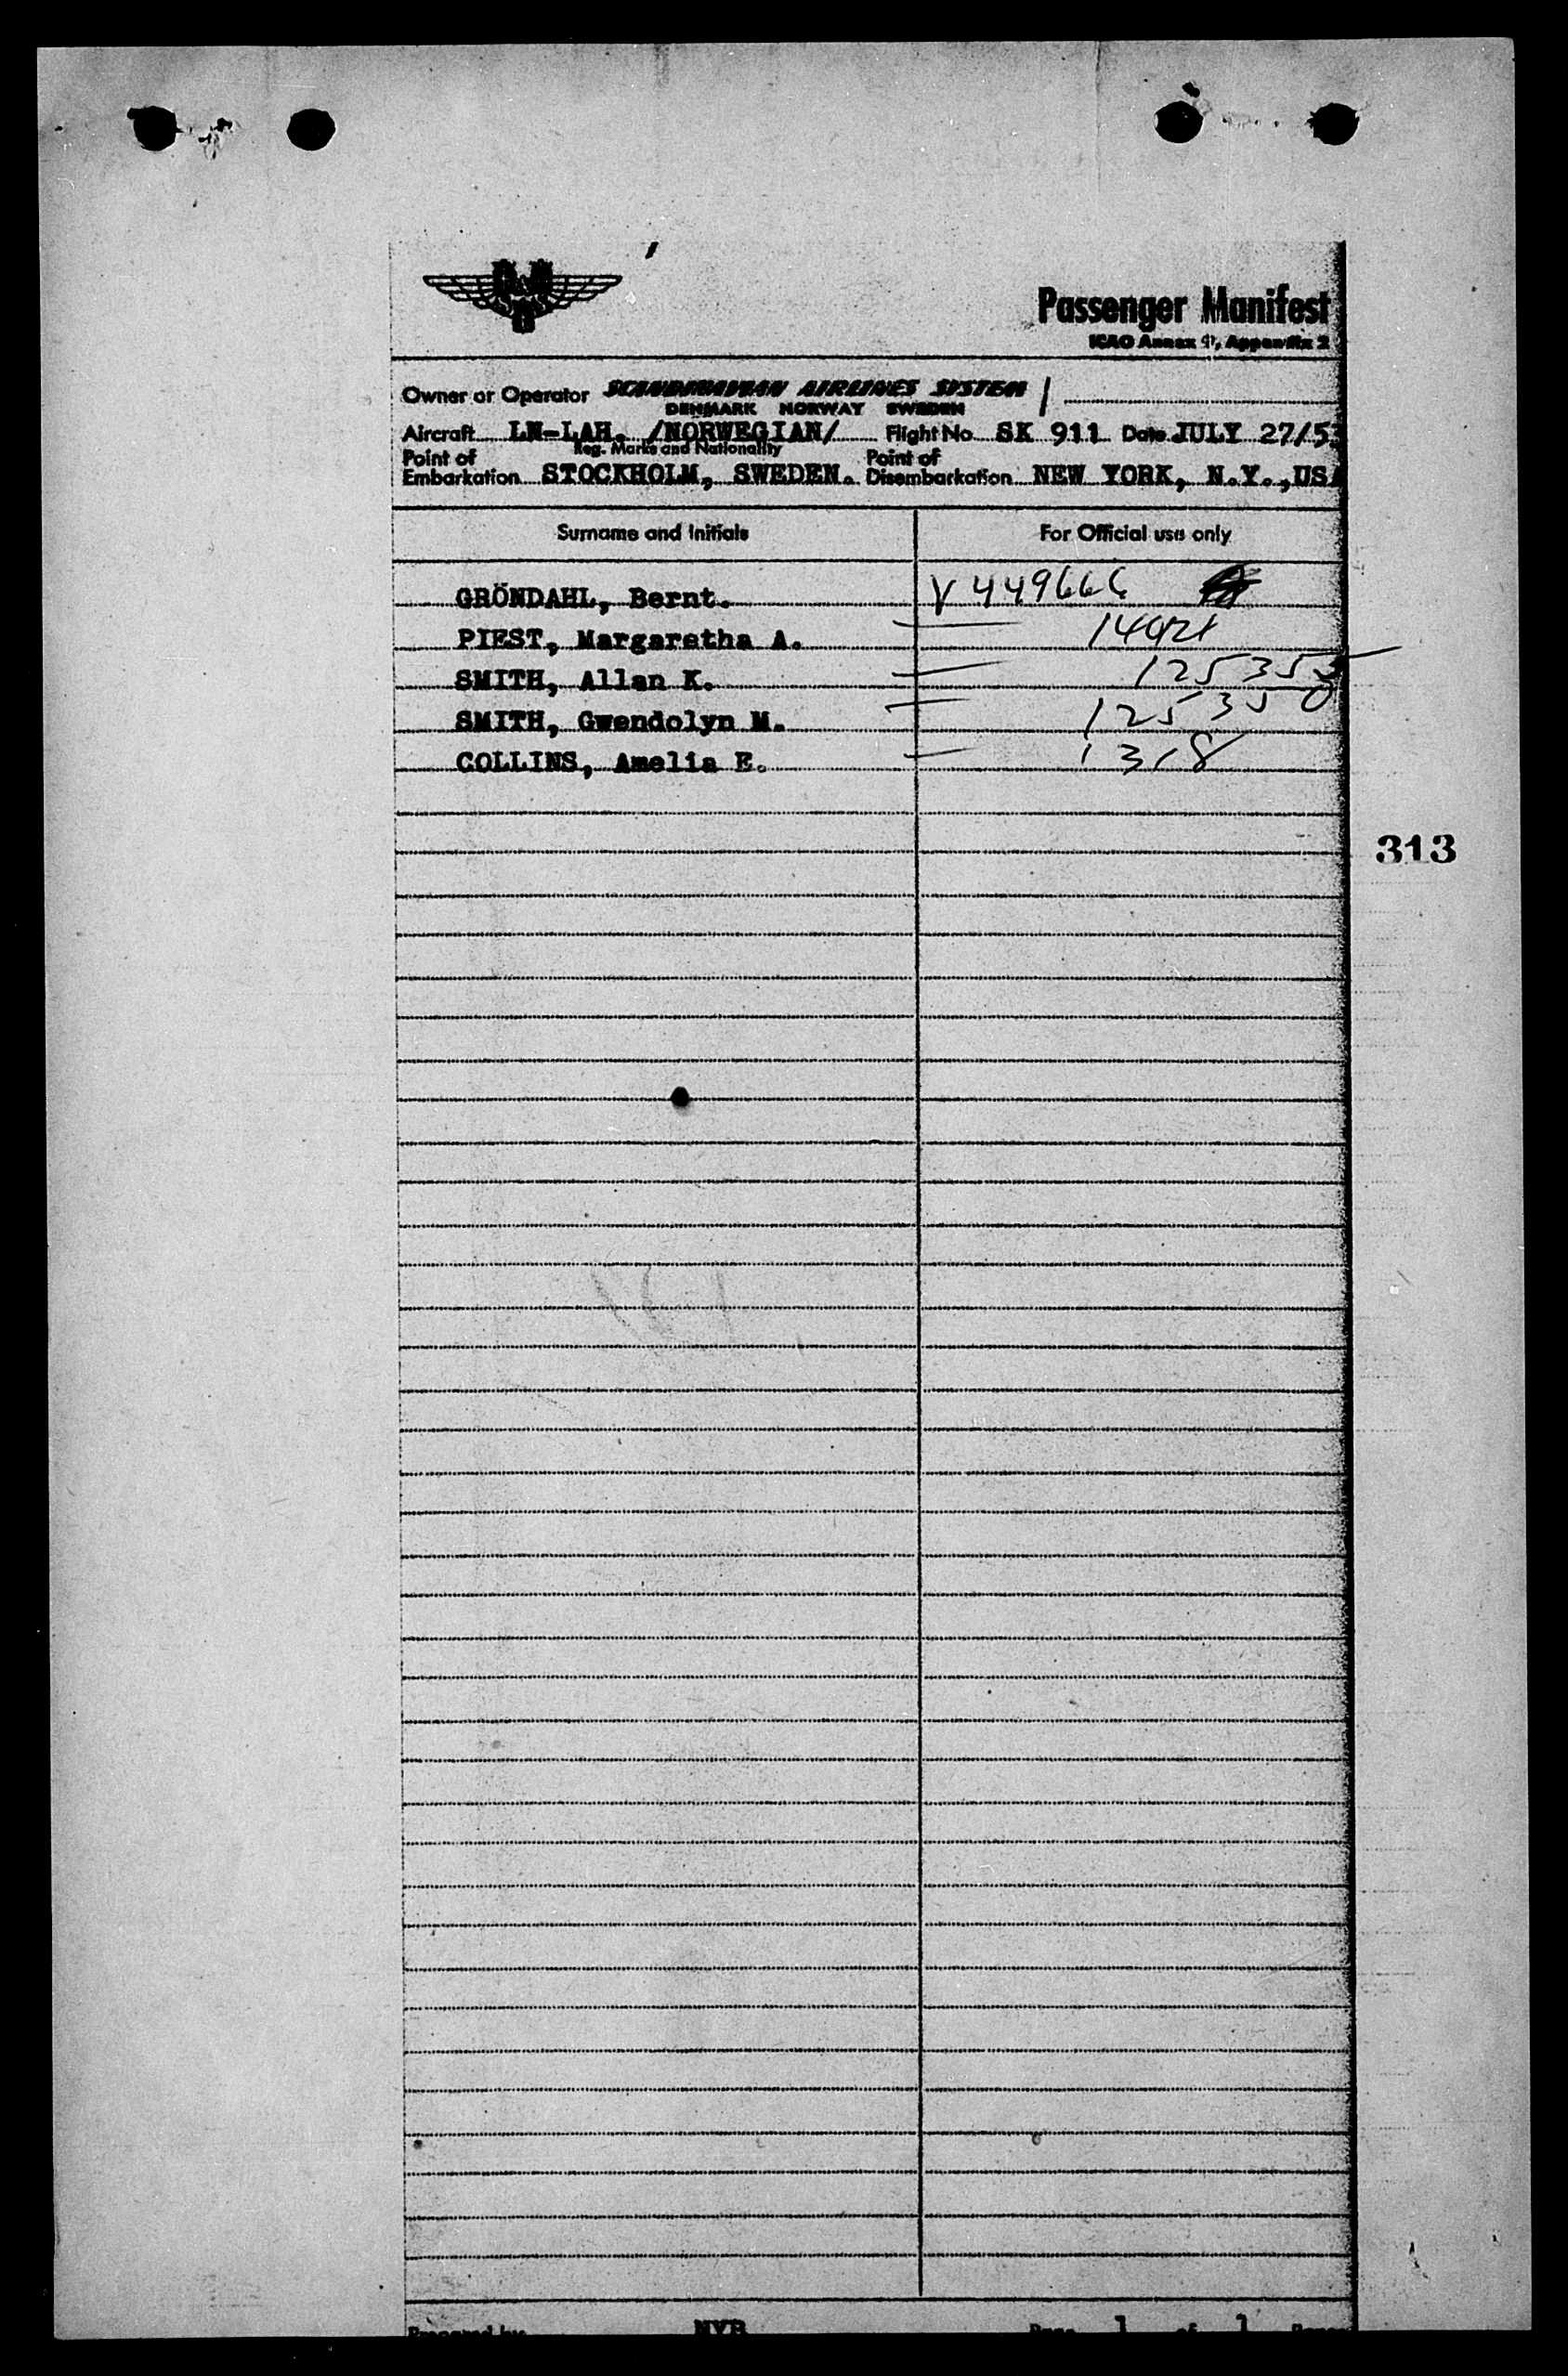 Passenger Manifest
ICAO Annex 9, Appendix 2
Owner or Operator SCANDINAVIAN AIRLINES SYSTEM
DENMARK NORWAY SWEDEN
Aircraft LN-LAH. /NORWEGIAN/ Flight No SK 911 Date JULY 27/53
Reg. Marks and Nationality
Point of Embarkation STOCKHOLM, SWEDEN. Point of Disembarkation NEW YORK, N.Y.,USA
Surname and Initials For Official use only
GRÖNDAHL, Bernt. V 449666
PIEST, Margaretha A.
SMITH, Allan K. 125353
SMITH, Gwendolyn M. 125350
COLLINS, Amelia E. 1318
313
Prepared by Page 1 of 1 Pages